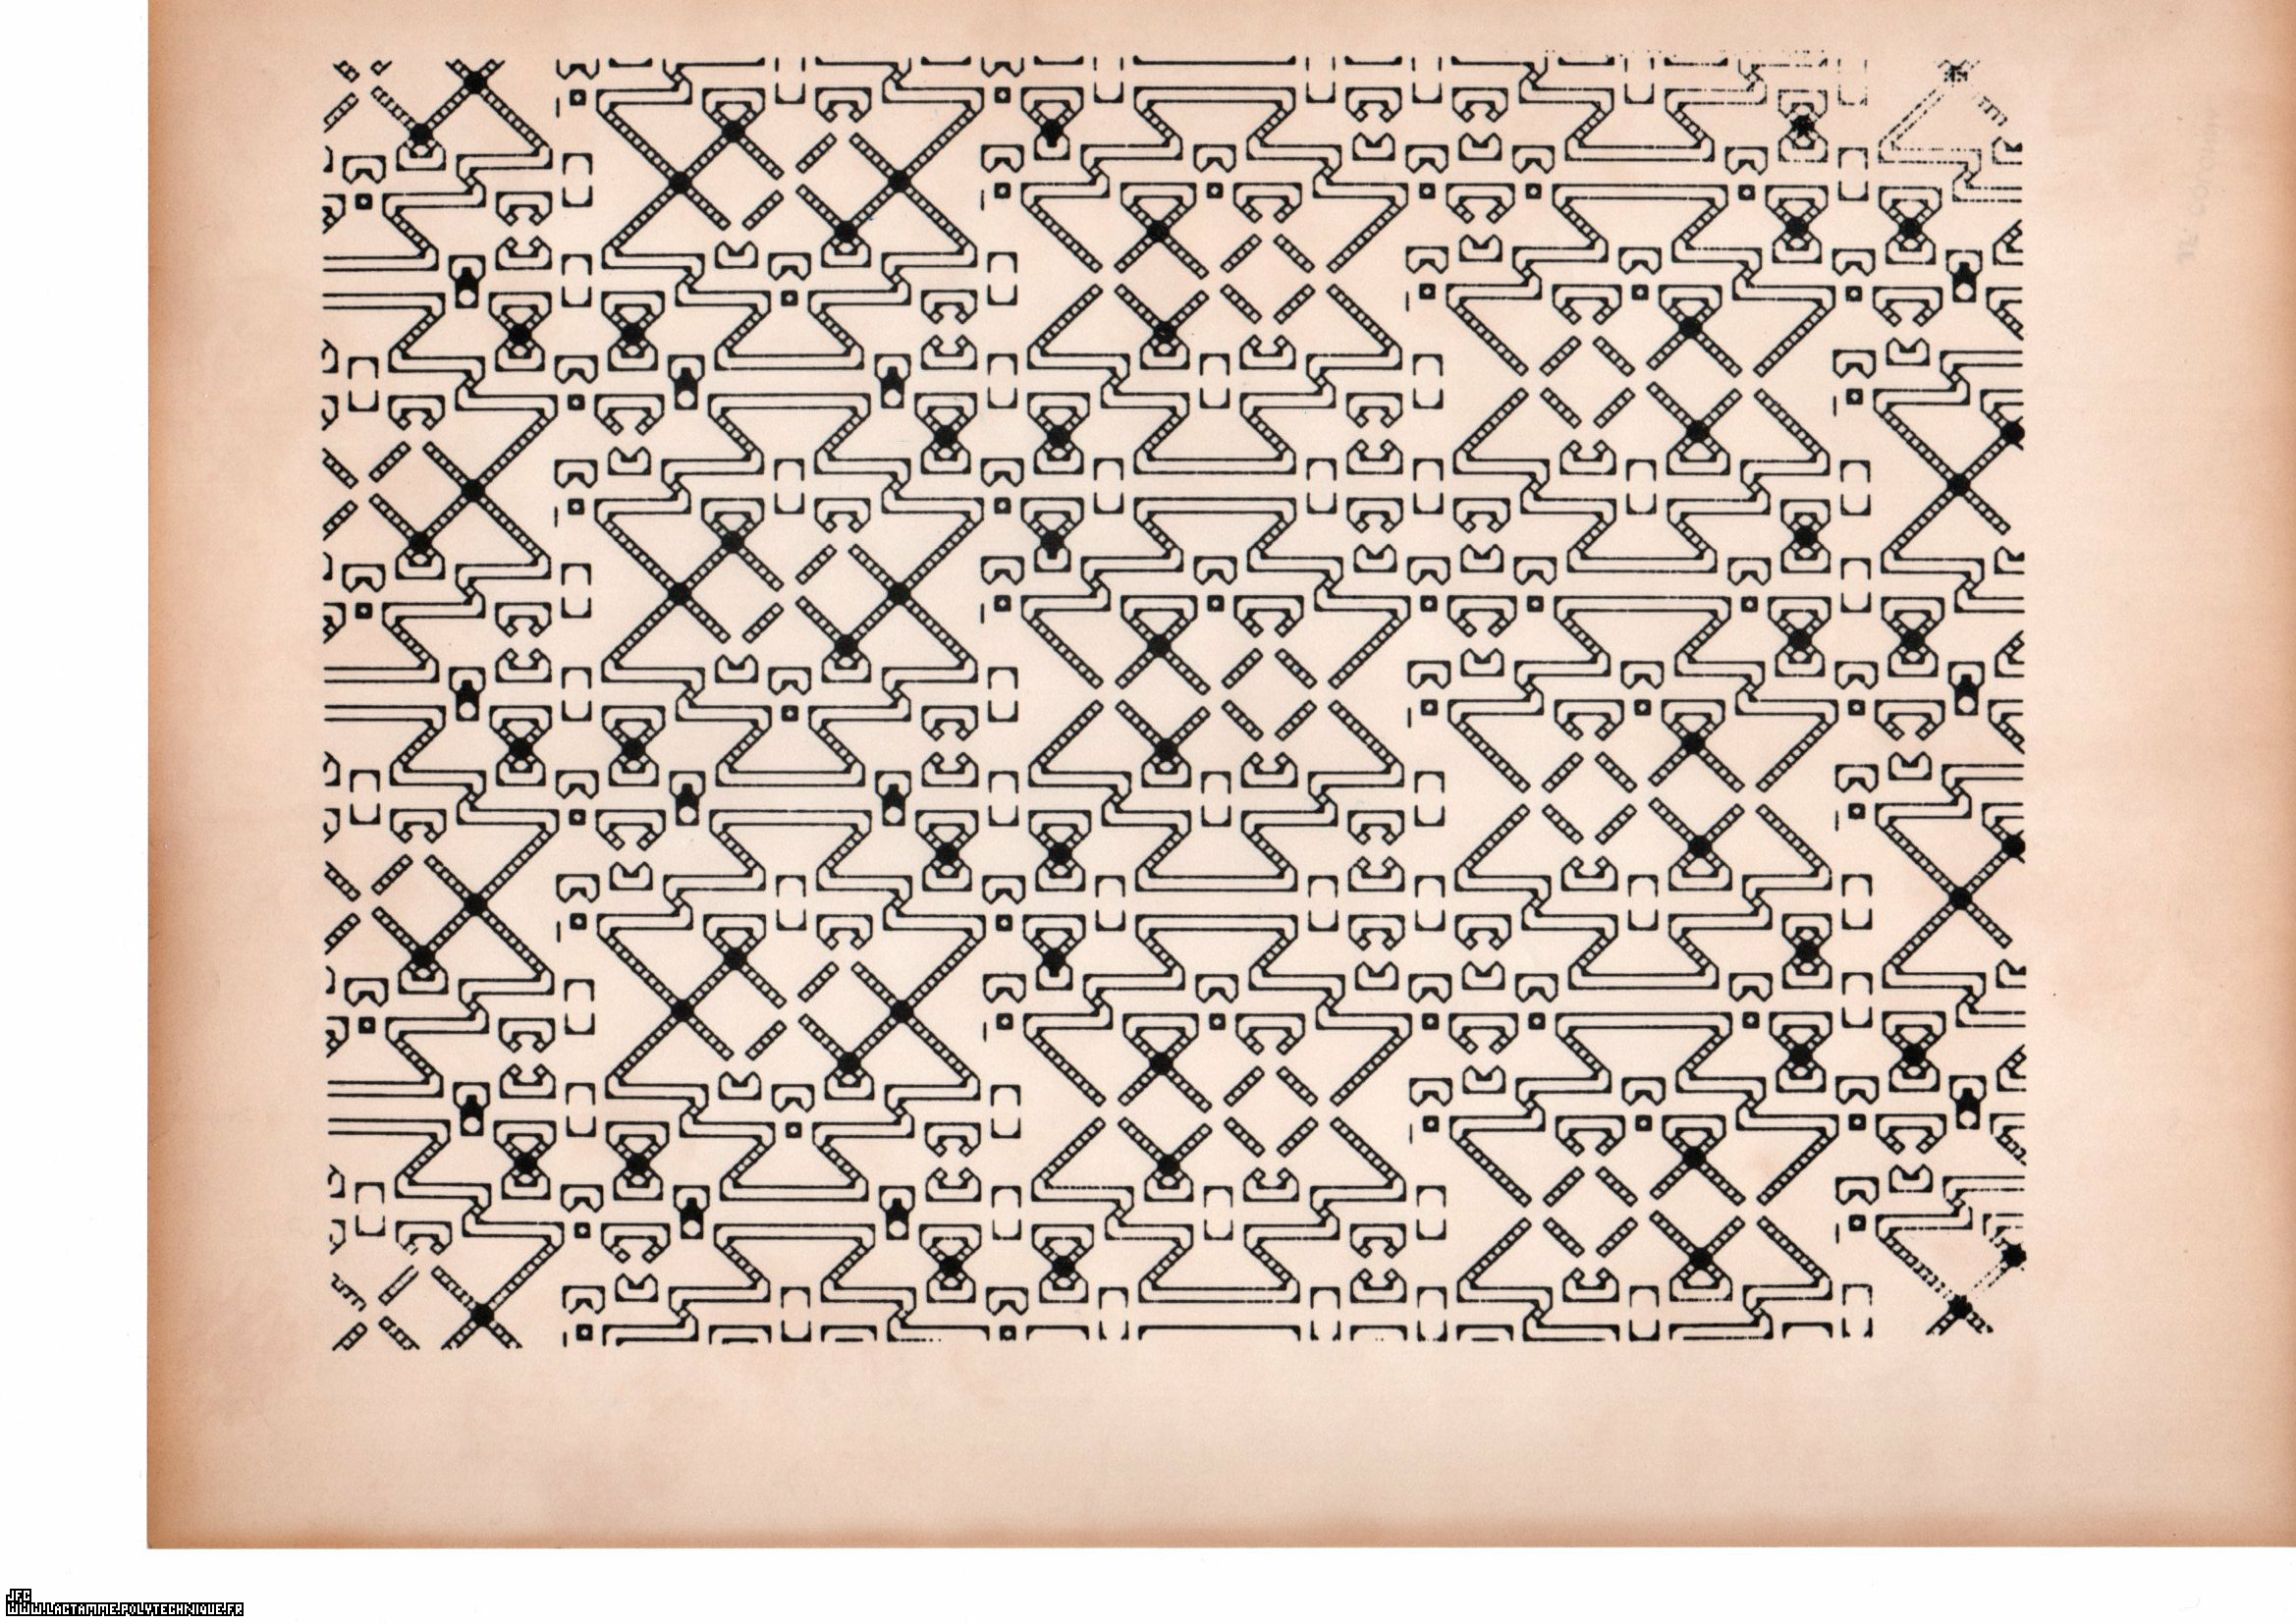 JFC
WWW.LACTAMME.POLYTECHNIQUE.FR